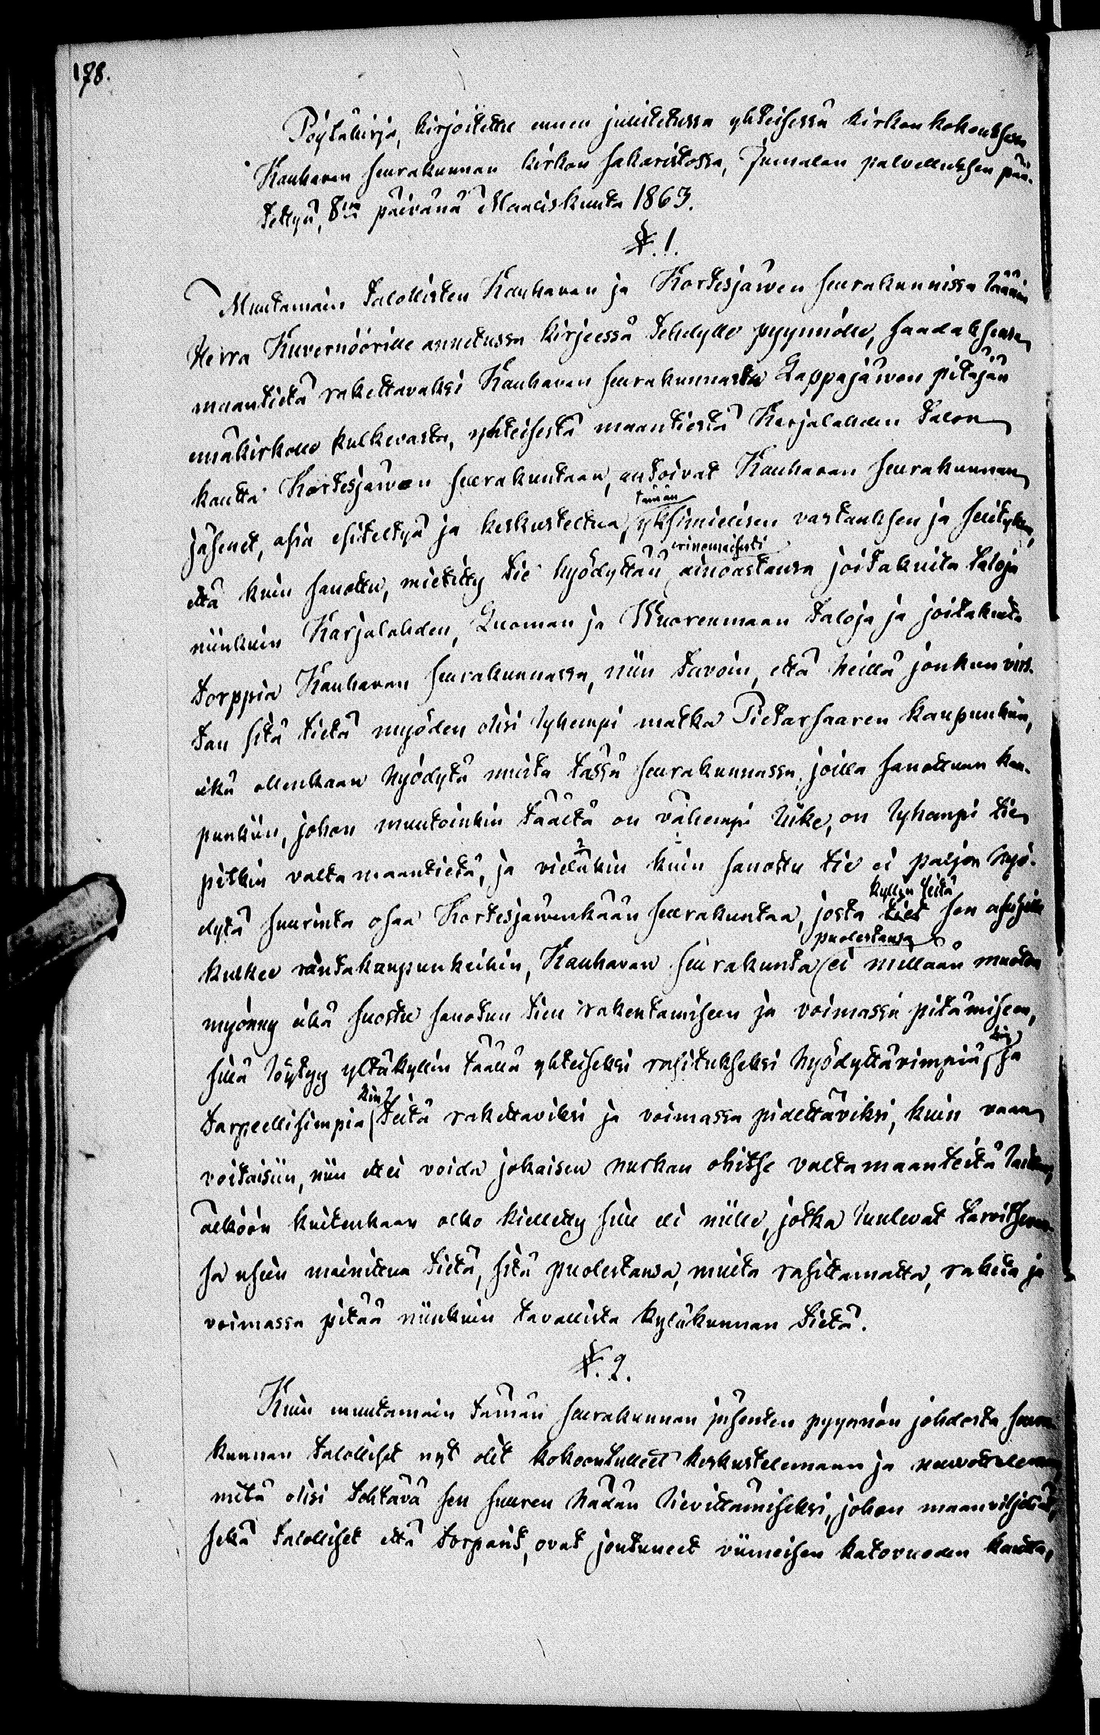 178.
Pöytäkirja, kirjoitettu ennen julistetussa yhteisessä kirkon kokouksessa
Kauhavan seurakunnan kirkon sakaristossa, Jumalan palvelluksen pää-
tettyä, 8na päivänä Maaliskuuta 1863.
§. 1.
Muutamain talollisten Kauhavan ja Kortesjärven seurakunnissa läänin
Herra Kuvernöörille annetussa kirjeessä tehdylle pyynnölle, saadaksensa
maantietä rakettavaksi Kauhavan seurakunnasta Lappajärven pitäjän
emäkirkolle kulkevasta, yhteisestä maantiestä Karjalahden talon
kautta Kortesjärven seurakuntaan, antoivat Kauhavan seurakunnan
jäsenet, asia esiteltyä ja keskusteltua, tämän yksimielisen vastauksen ja selityksen,
että kuin sanottu, mietitty tie hyödyttää erinomaisesti ainoastansa joitakuita taloja
niinkuin Karjalahden, Luoman ja Wuorenmaan taloja ja joitakuita
torppia Kauhavan seurakunnassa, niin tavoin, että heillä jonkun virs-
tan sitä tietä myöden olisi lyhempi matka Pietarsaaren kaupunkiin,
eikä ollenkaan hyödytä muita tässä seurakunnassa, joilla sanottuun kau-
punkiin, johon muutoinkin täältä on vähempi liike, on lyhempi tie
pitkin valtamaantietä, ja vieläkin kuin sanottu tie ei paljon hyö-
dytä suurinta osaa Kortesjärvenkään seurakuntaa, josta kyllin teitä tiet sen asujille
kulkee rantakaupunkeihin, Kauhavan seurakunta puolestansa ei millään muotoa
myönny eikä suostu sanotun tien rakentamiseen ja voimassa pitämiseen,
sillä löytyy yltäkyllin täällä yhteiseksi rasitukseksi hyödyttävimpiä kin ja
tarpeellisimpia kin teitä rakettaviksi ja voimassa pidettäviksi, kuin vaan
voitaisiin, niin ettei voida jokaisen nurkan ohitse valtamaanteitä laittaa,
älköön kuitenkaan olko kielletty sille eli niille, jotka luulevat tarvitsevan-
sa usein mainittua tietä, sitä puolestansa, muita rasittamatta, raketa ja
voimassa pitää niinkuin tavallista kyläkunnan tietä.
§. 2.
Kuin muutamain tämän seurakunnan jäsenten pyynnön johdosta seura-
kunnan talolliset nyt olit kokoontulleet keskustelemaan ja neuvottelemaan
mitä olisi tehtävä sen suuren hädän lievittämiseksi, johon maanviljeliät,
sekä talolliset että torparit, ovat joutuneet viimeisen katovuoden kautta,